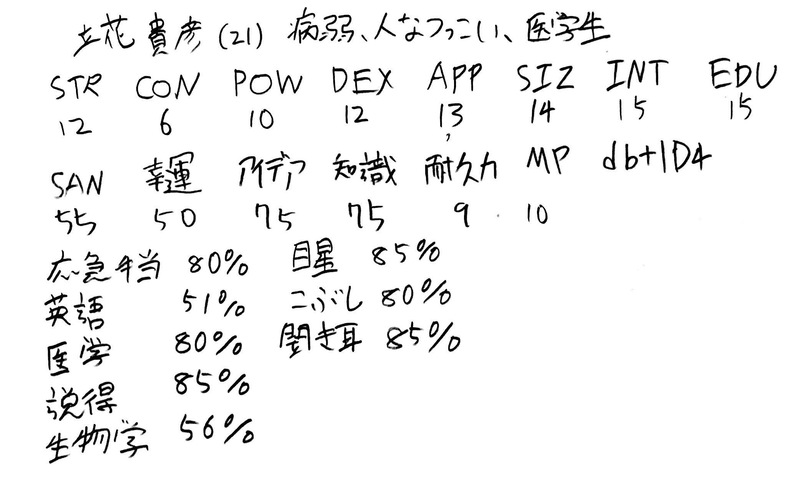 立花貴彦(21) 病弱、人なつっこい、医学生
STR CON POW DEX APP SIZ INT EDU
12 6 10 12 13 14 15 15
SAN 幸運 アイデア 知識 耐久力 MP db+1D4
55 50 75 75 9 10
応急手当 80% 目星 85%
英語 51% こぶし 80%
医学 80% 聞き耳 85%
説得 85%
生物学 56%